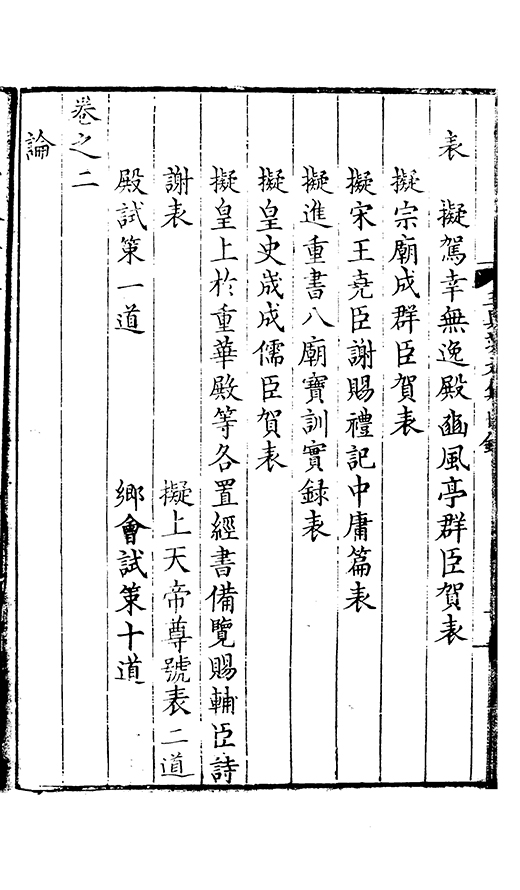 表 擬駕幸無逸殿豳風亭群臣賀表
擬宗廟成群臣賀表
擬宋王堯臣謝賜禮記中庸篇表
擬進重書八廟寶訓實録表
擬皇史宬成儒臣賀表
擬皇上於重華殿等各置經書備覽賜輔臣詩
謝表 擬上天帝尊號表二道
殿試策一道 鄉會試策十道
卷之二
論